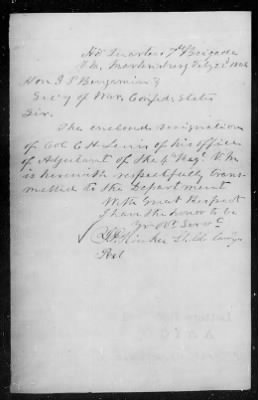 Hd Quarters 7th Brigade
Hon J P Benjamin
Secy of War, Confed. States
Sir.
The enclosed resignation
of Col C H Lewis of his office
of Adjutant of the 4" Regt V. M.
is herewith respectfully trans
mitted to the Department
With Great Respect
I have the honor to be
Yr Obt Servt